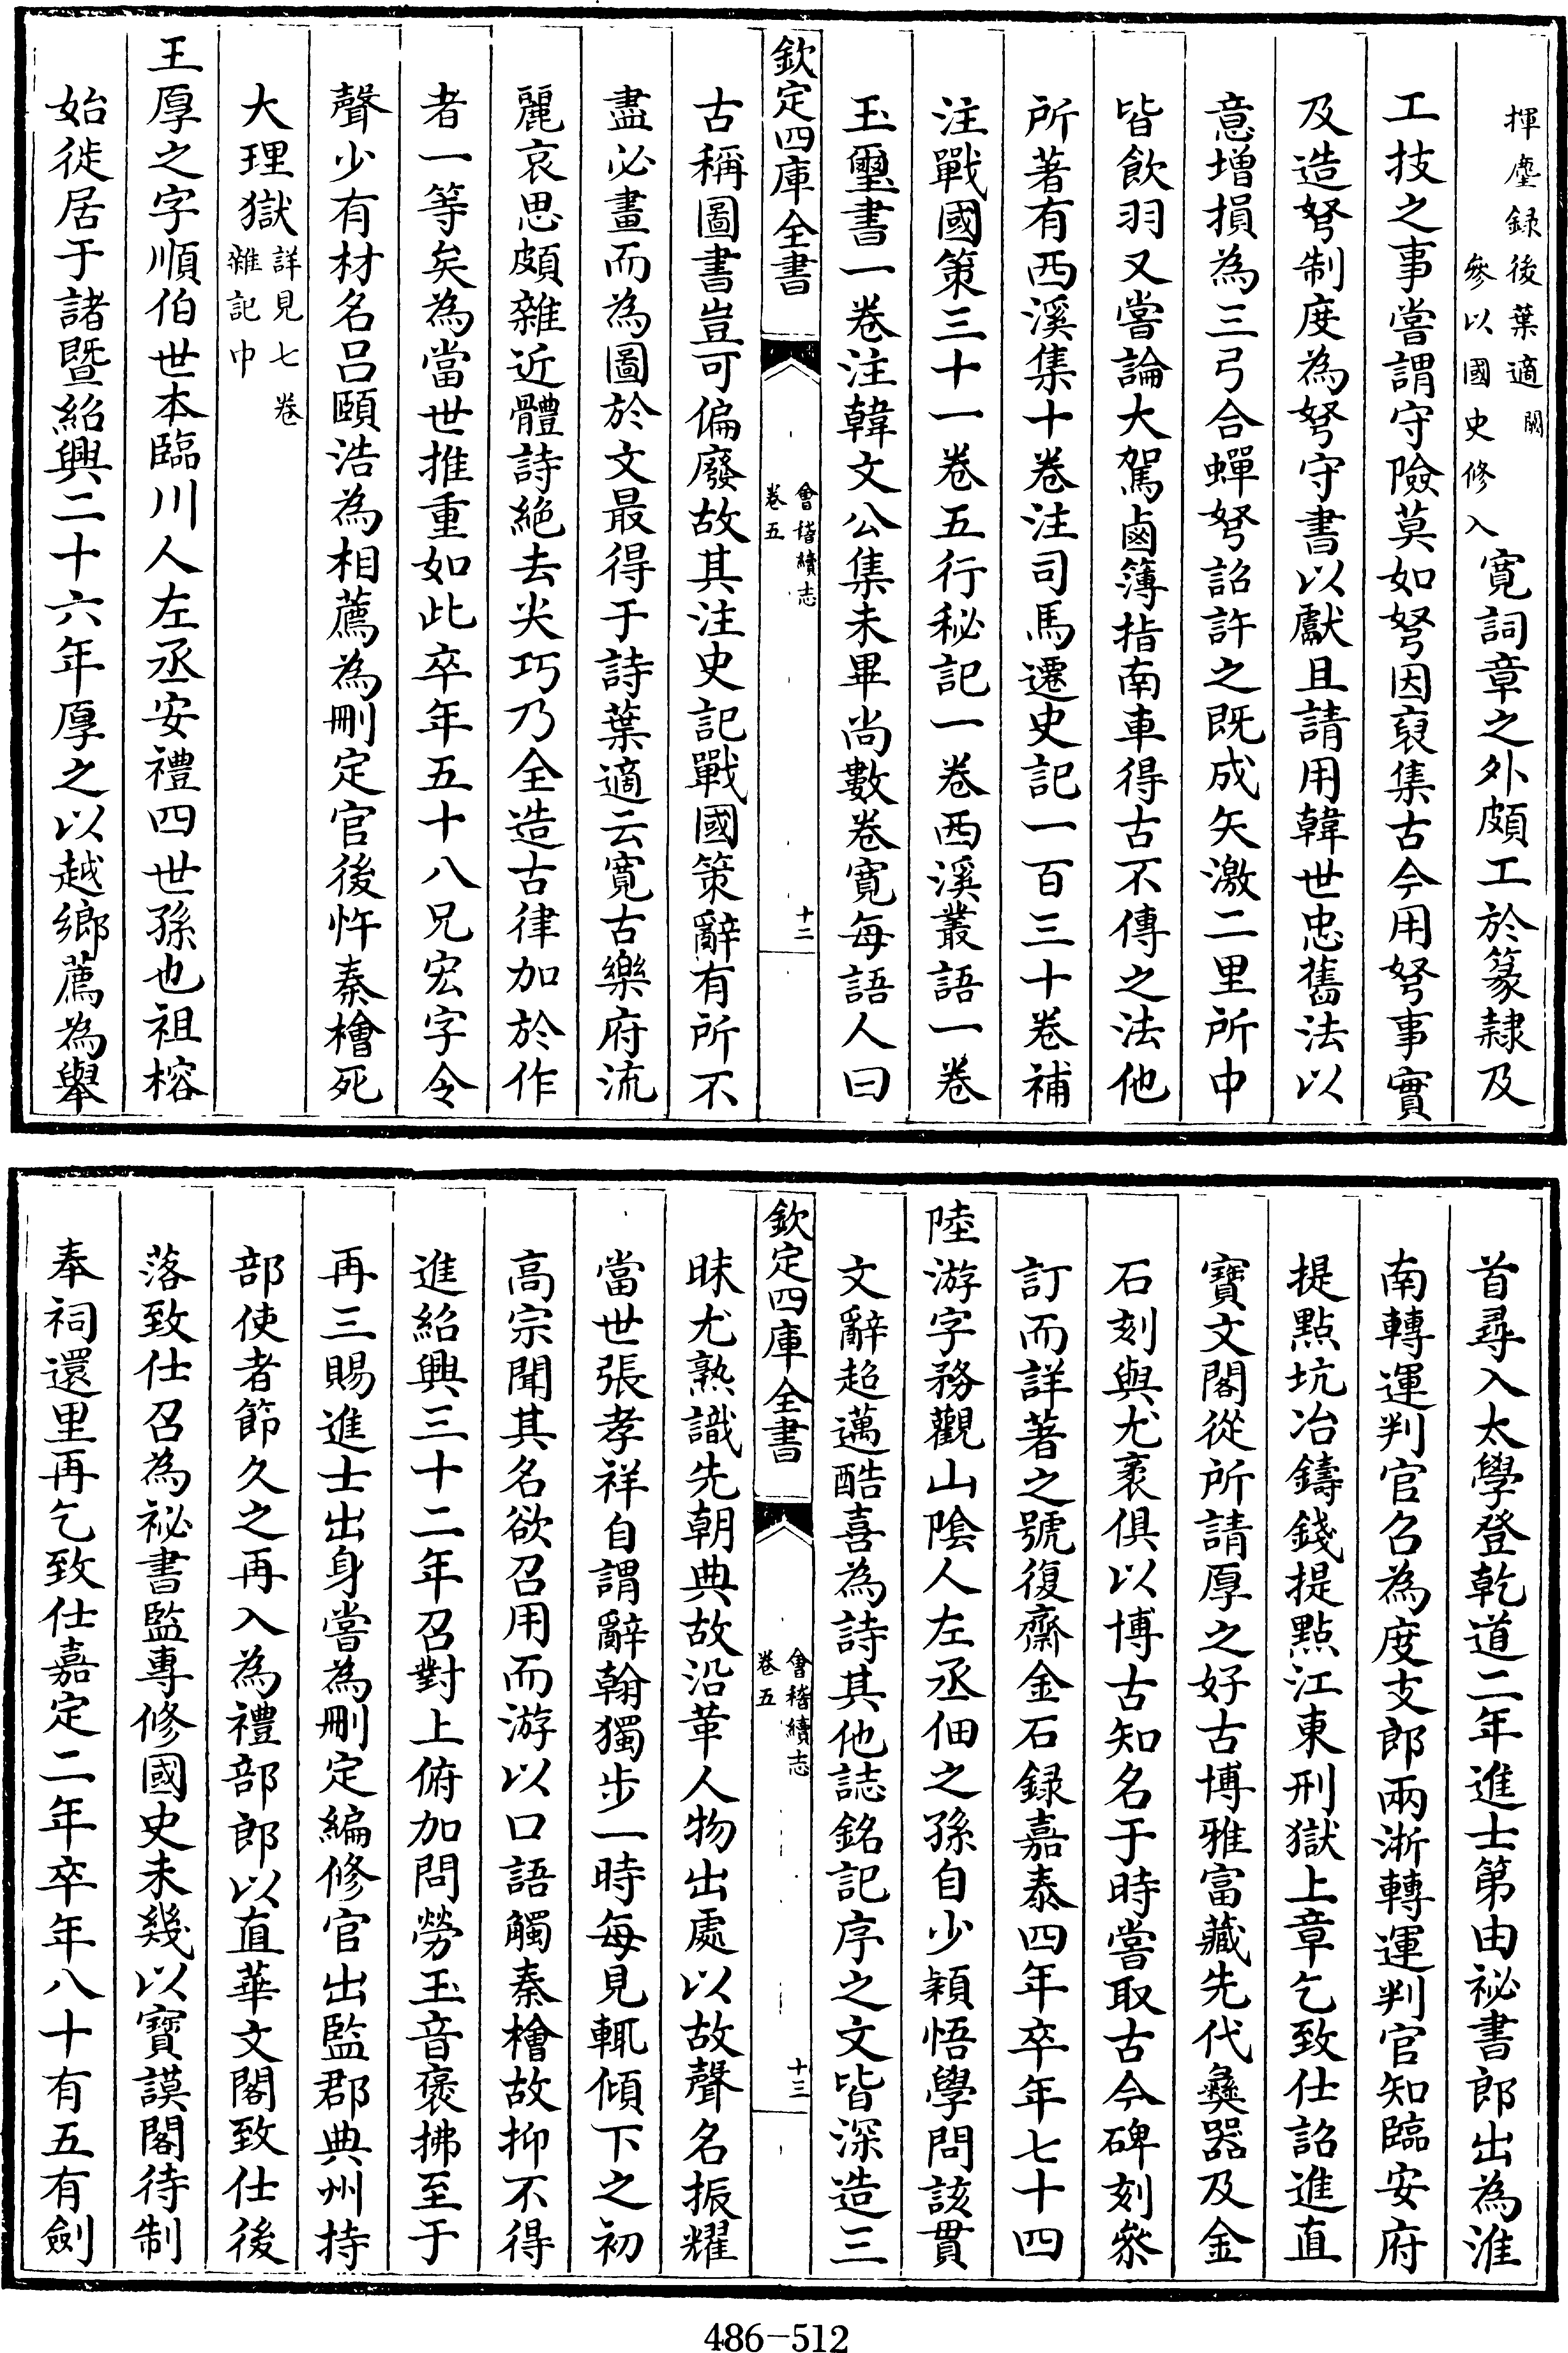 揮麈録後葉適闕
參以國史修入
寛詞章之外頗工於篆隷及
工技之事嘗謂守險莫如弩因裒集古今用弩事實
及造弩制度為弩守書以獻且請用韓世忠舊法以
意增損為三弓合蟬弩詔許之既成矢激二里所中
皆飲羽又嘗論大駕鹵簿指南車得古不傳之法他
所著有西溪集十卷注司馬遷史記一百三十卷補
注戰國策三十一卷五行秘記一卷西溪叢語一卷
玉璽書一卷注韓文公集未畢尚數卷寛每語人曰
欽定四庫全書
會稽續志
卷五
十二
古稱圖書豈可偏廢故其注史記戰國策辭有所不
盡必畫而為圖於文最得于詩葉適云寛古樂府流
麗哀思頗雜近體詩絶去尖巧乃全造古律加於作
者一等矣為當世推重如此卒年五十八兄宏字令
聲少有材名吕頤浩為相薦為刪定官後忤秦檜死
大理獄
詳見七卷
雜記中
王厚之字順伯世本臨川人左丞安禮四世孫也祖榕
始徙居于諸暨紹興二十六年厚之以越鄉薦為舉
首尋入太學登乾道二年進士第由祕書郎出為淮
南轉運判官召為度支郎兩淅轉運判官知臨安府
提點坑冶鑄錢提點江東刑獄上章乞致仕詔進直
寶文閣從所請厚之好古博雅富藏先代彝器及金
石刻與尤袤俱以博古知名于時嘗取古今碑刻叅
訂而詳著之號復齋金石録嘉泰四年卒年七十四
陸游字務觀山隂人左丞佃之孫自少穎悟學問該貫
文辭超邁酷喜為詩其他誌銘記序之文皆深造三
欽定四庫全書
會稽續志
卷五
十三
昧尤熟識先朝典故沿革人物出處以故聲名振耀
當世張孝祥自謂辭翰獨步一時每見輒傾下之初
高宗聞其名欲召用而游以口語觸秦檜故抑不得
進紹興三十二年召對上俯加問勞玉音褒拂至于
再三賜進士出身嘗為刪定編修官出監郡典州持
部使者節久之再入為禮部郎以直華文閣致仕後
落致仕召為祕書監專修國史未幾以寶謨閣待制
奉祠還里再乞致仕嘉定二年卒年八十有五有劍
486-512